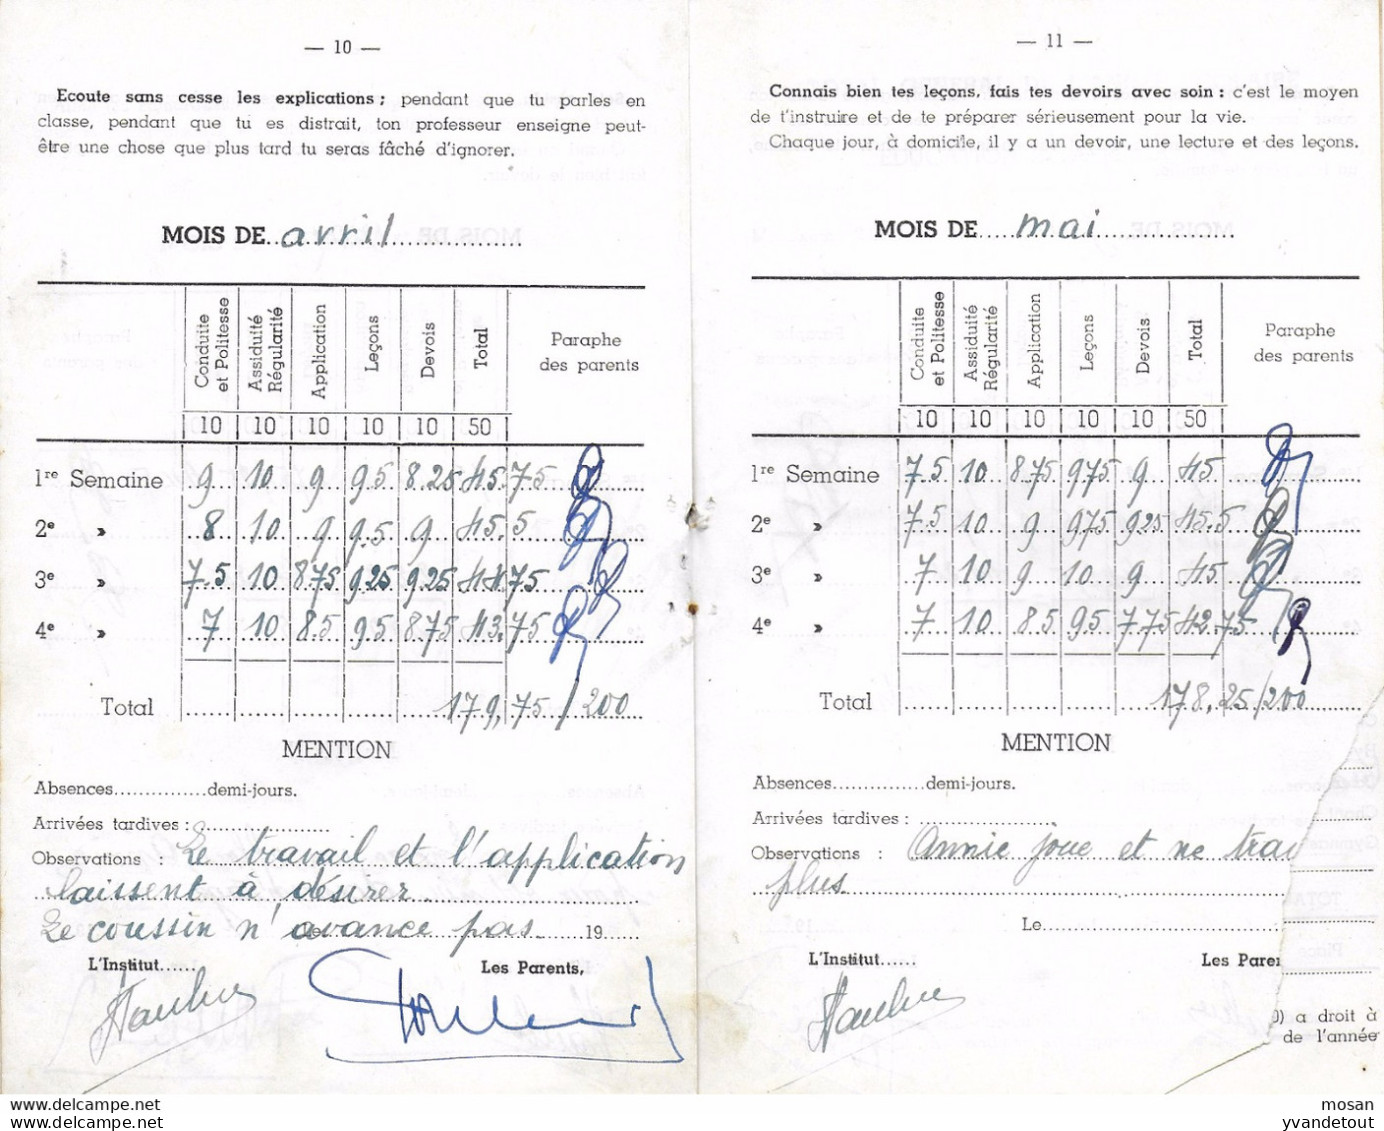 — 10 —
Ecoute sans cesse les explications ; pendant que tu parles en
classe, pendant que tu es distrait, ton professeur enseigne peut-
être une chose que plus tard tu seras fâché d'ignorer.
MOIS DE avril
Conduite et Politesse | Assiduité Régularité | Application | Leçons | Devois | Total | Paraphe des parents
10 | 10 | 10 | 10 | 10 | 50
1re Semaine 9 10 9 9.5 8.25 45.75
2e » 8 10 9 9.5 9 45.5
3e » 7.5 10 8.75 9.25 9.25 44.75
4e » 7 10 8.5 9.5 8.75 43.75
Total 179,75/200
MENTION
Absences..............demi-jours.
Arrivées tardives :
Observations : Le travail et l'application
laissent à désirer
Le coussin n'avance pas. 19
L'Institut...... Les Parents,
— 11 —
Connais bien tes leçons, fais tes devoirs avec soin : c'est le moyen
de t'instruire et de te préparer sérieusement pour la vie.
Chaque jour, à domicile, il y a un devoir, une lecture et des leçons.
MOIS DE mai
Conduite et Politesse | Assiduité Régularité | Application | Leçons | Devois | Total | Paraphe des parents
10 | 10 | 10 | 10 | 10 | 50
1re Semaine 7.5 10 8.75 9.75 9 45
2e » 7.5 10 9 9.75 9.25 45.5
3e » 7 10 9 10 9 45
4e » 7 10 8.5 9.5 7.75 42.75
Total 178,25/200
MENTION
Absences..............demi-jours.
Arrivées tardives :
Observations : Annie joue et ne tra
plus
Le
L'Institut...... Les Paren
) a droit à
de l'année
mosan
yvandetout